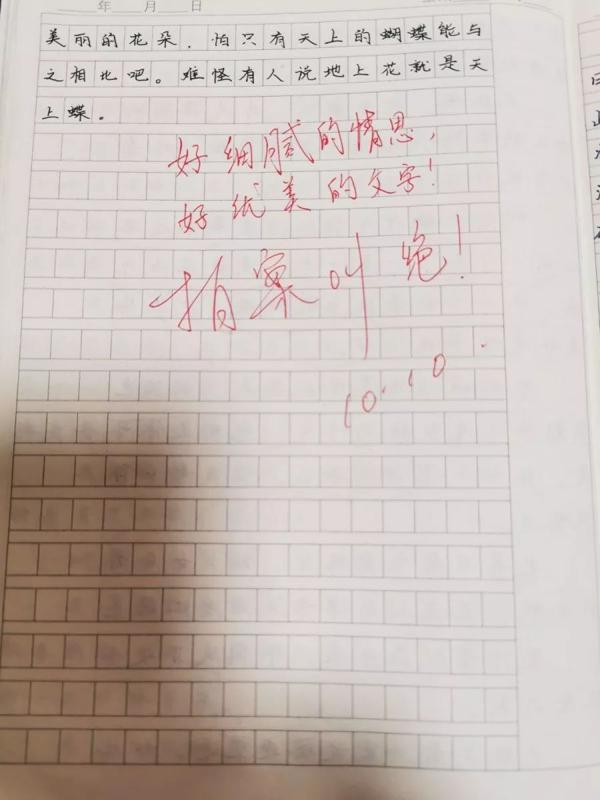 年 月 日
美丽的花朵，怕只有天上的蝴蝶能与
之相比吧。难怪有人说地上花就是天
上蝶。
好细腻的情思，
好优美的文字！
拍案叫绝！
10.10.